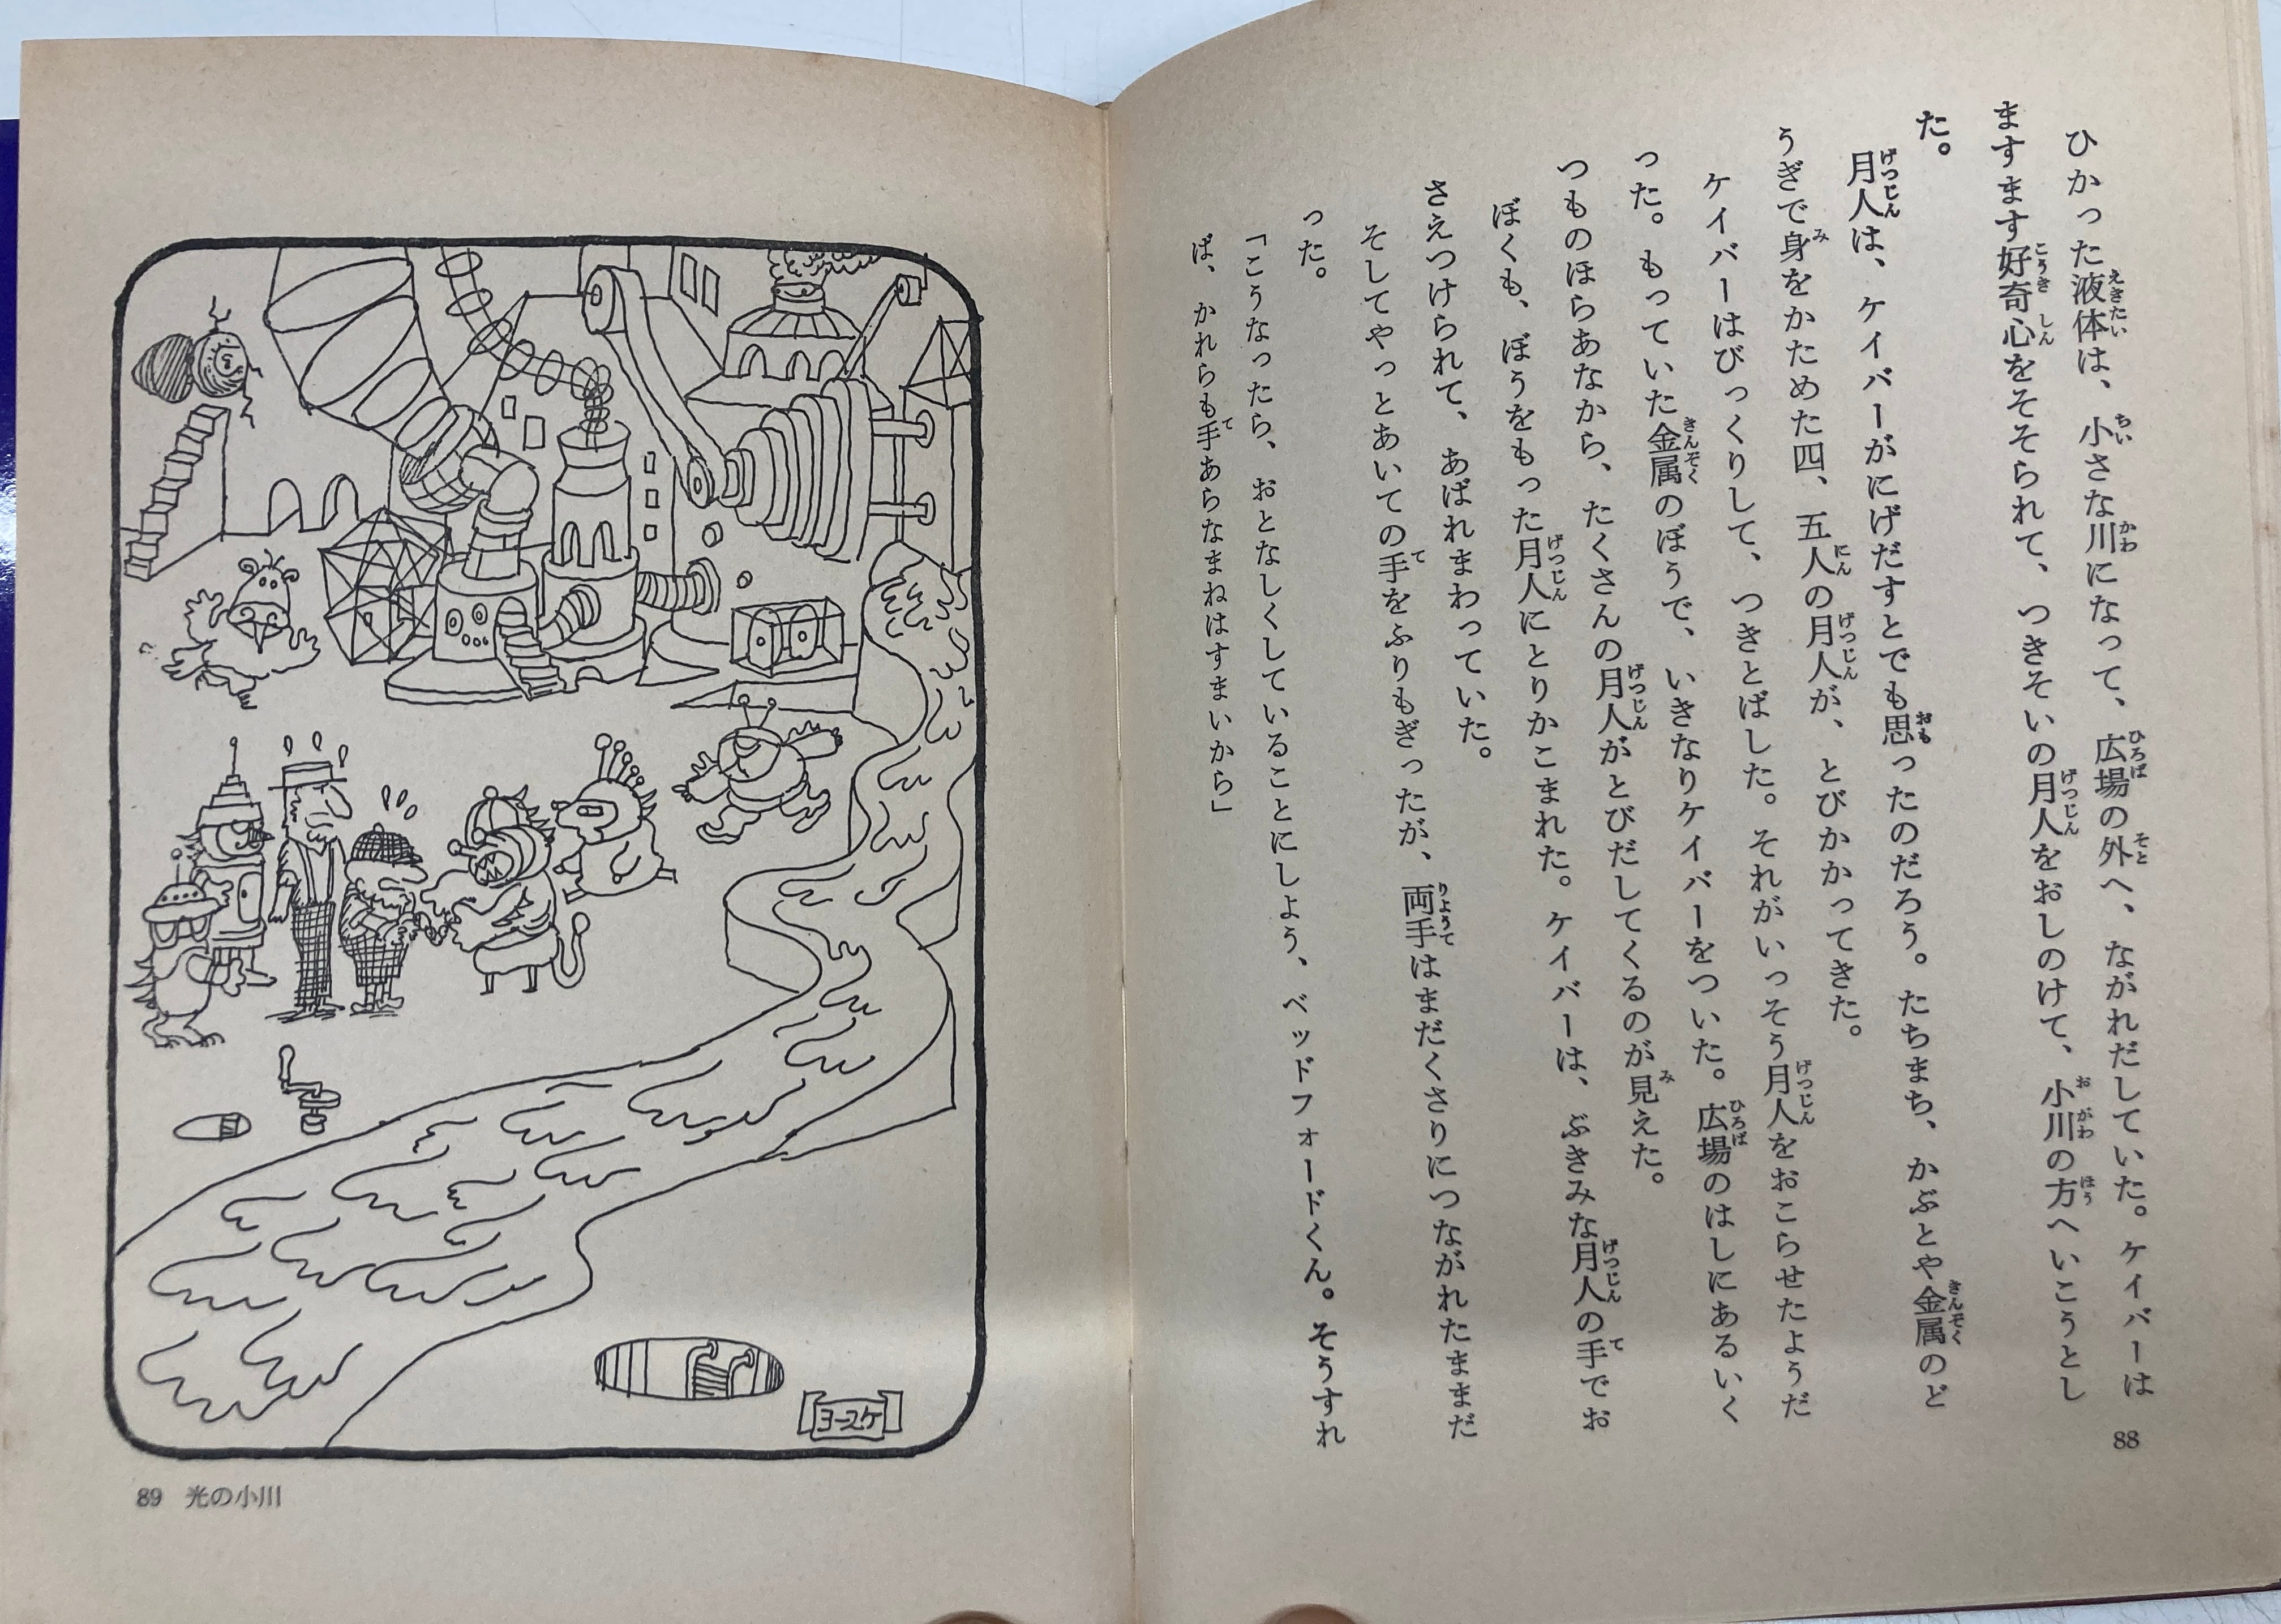 ひかった液体は、小さな川になって、広場の外へ、ながれだしていた。ケイバーは
ますます好奇心をそそられて、つきそいの月人をおしのけて、小川の方へいこうとし
た。
月人は、ケイバーがにげだすとでも思ったのだろう。たちまち、かぶとや金属のど
うぎで身をかためた四、五人の月人が、とびかかってきた。
ケイバーはびっくりして、つきとばした。それがいっそう月人をおこらせたようだ
った。もっていた金属のぼうで、いきなりケイバーをついた。広場のはしにあるいく
つものほらあなから、たくさんの月人がとびだしてくるのが見えた。
ぼくも、ぼうをもった月人にとりかこまれた。ケイバーは、ぶきみな月人の手でお
さえつけられて、あばれまわっていた。
そしてやっとあいての手をふりもぎったが、両手はまだくさりにつながれたままだ
った。
「こうなったら、おとなしくしていることにしよう、ベッドフォードくん。そうすれ
ば、かれらも手あらなまねはすまいから」
88
ヨースケ
89 光の小川